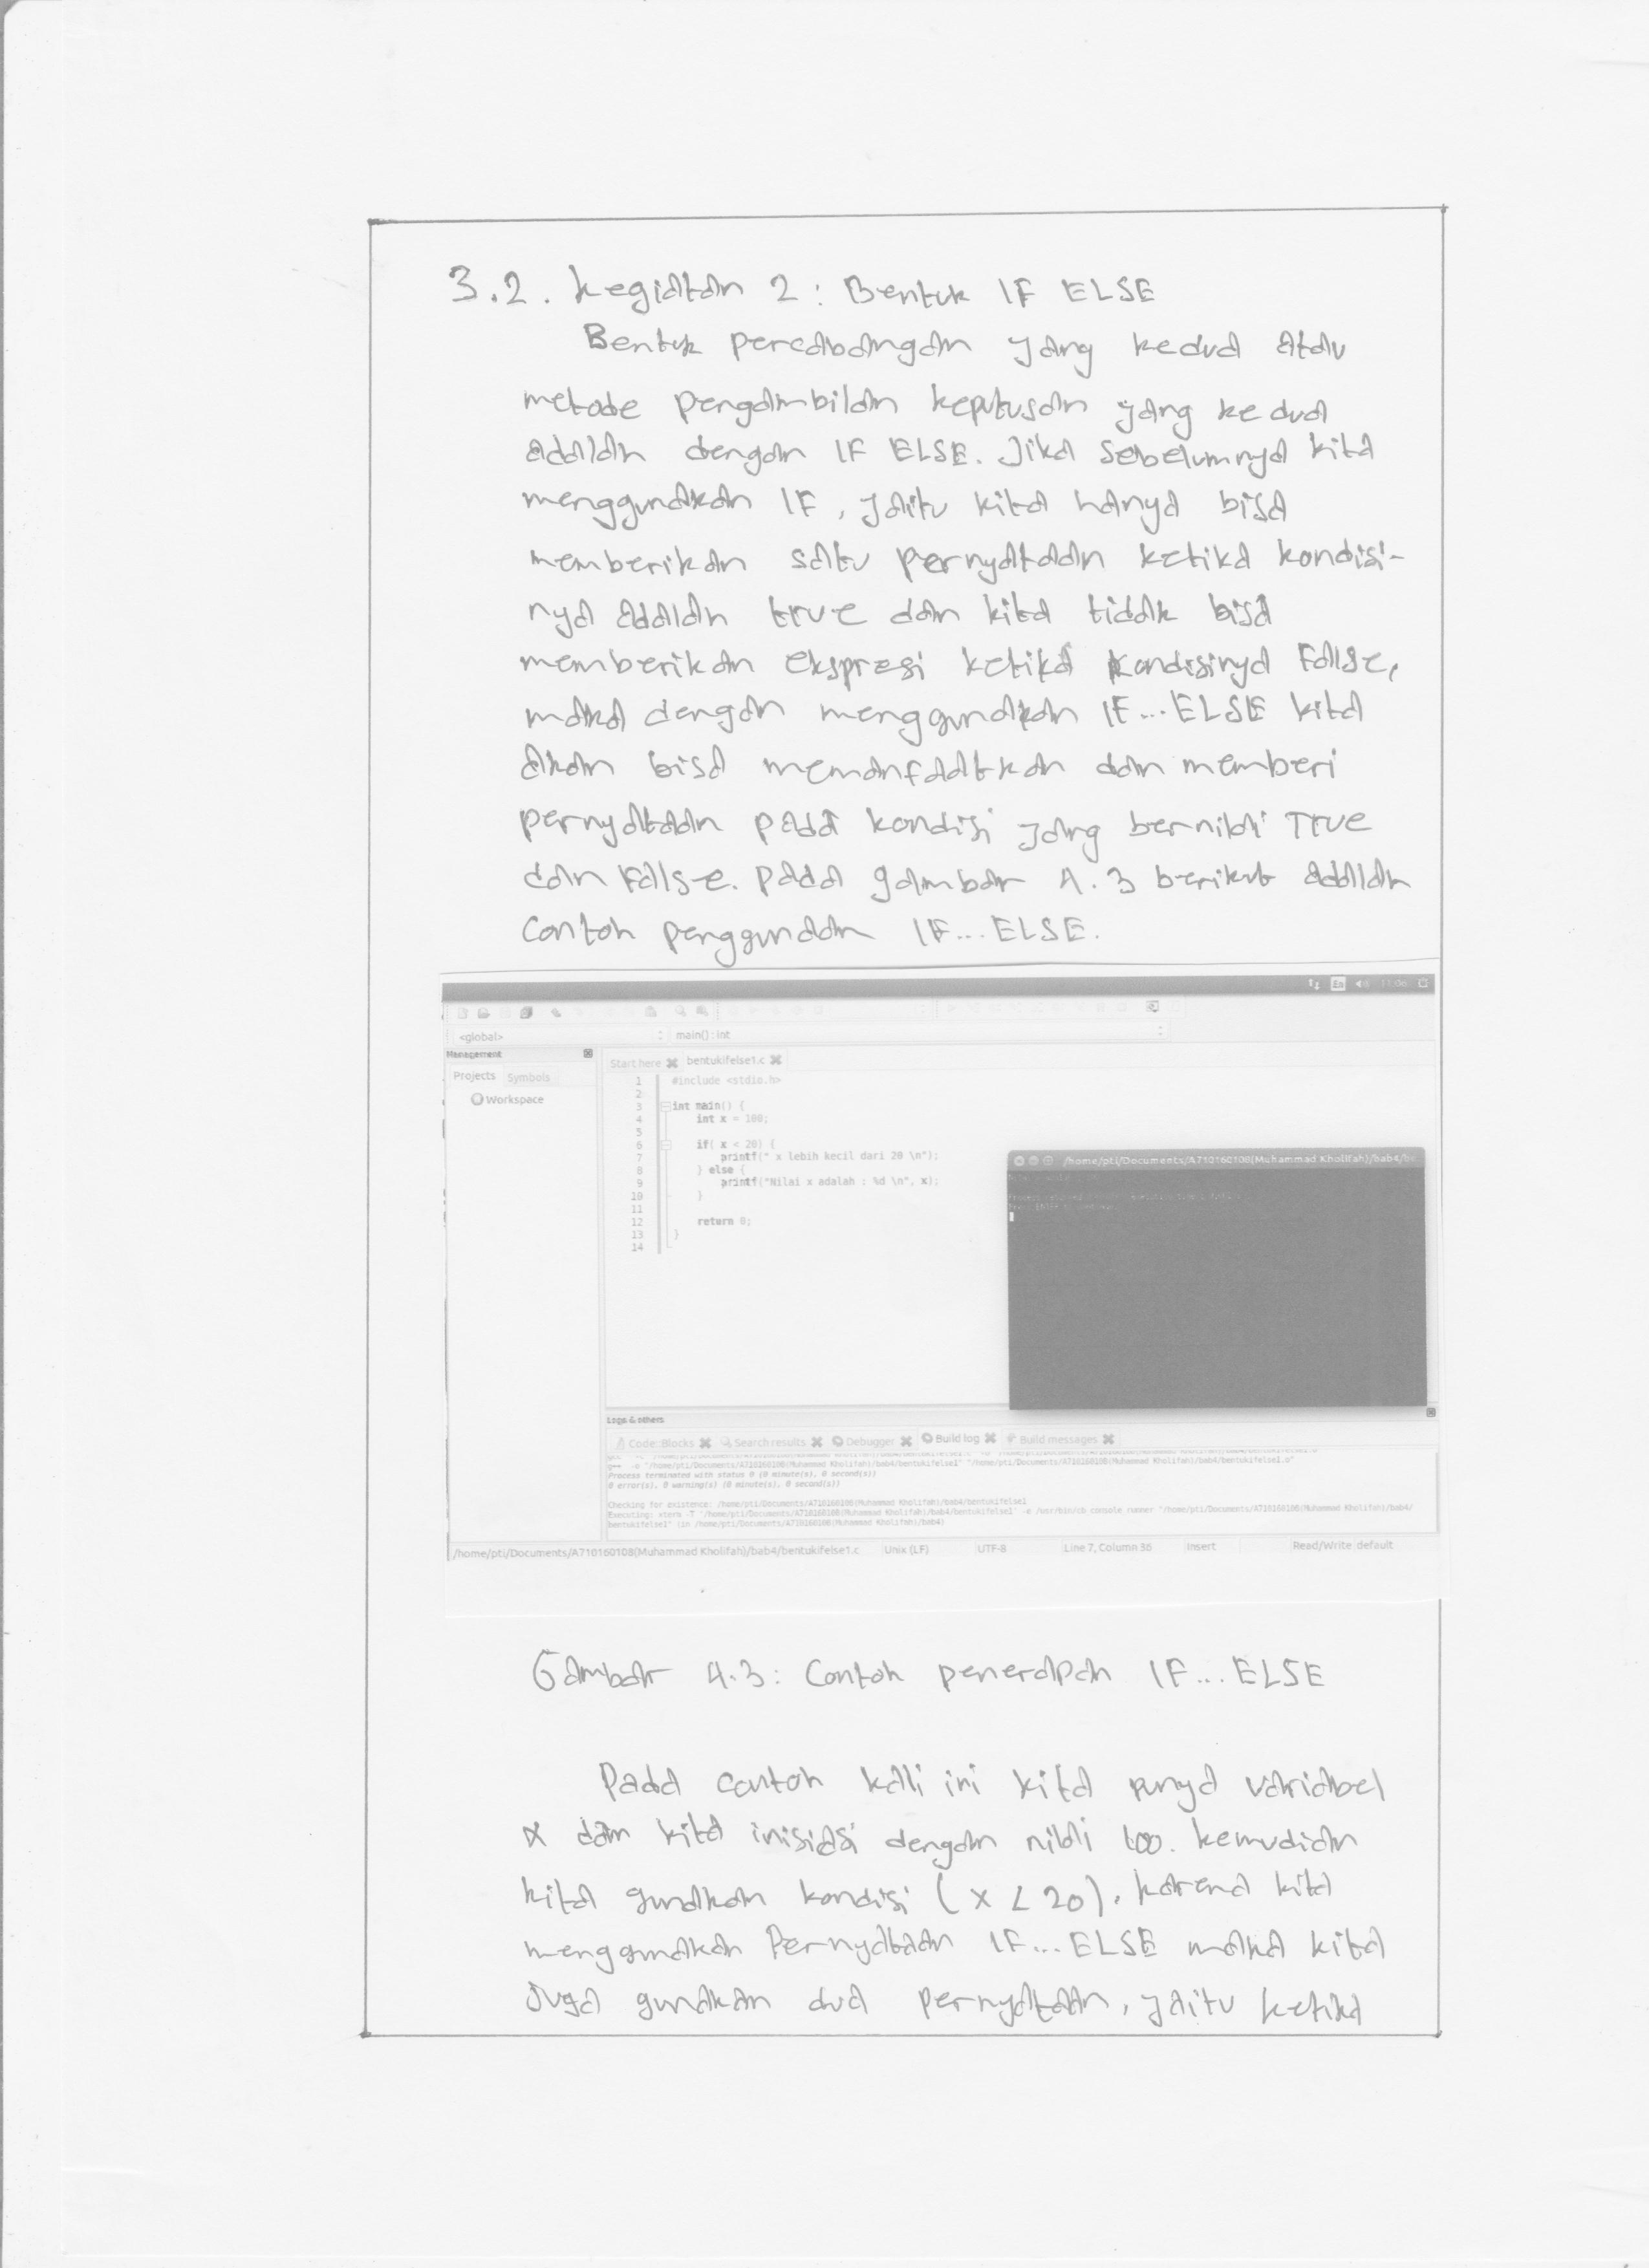 3.2. kegiatan 2 : Bentuk IF ELSE
Bentuk percabangan yang kedua atau
metode pengambilan keputusan yang kedua
adalah dengan IF ELSE. Jika sebelumnya kita
menggunakan IF, yaitu kita hanya bisa
memberikan satu pernyataan ketika kondisi-
nya adalah true dan kita tidak bisa
memberikan ekspresi ketika kondisinya False,
maka dengan menggunakan IF...ELSE kita
akan bisa memanfaatkan dan memberi
pernyataan pada kondisi yang bernilai True
dan False. Pada gambar 4.3 berikut adalah
Contoh penggunaan IF...ELSE.
En 11:06
<global> main() : int
Management
Start here bentukifelse1.c
Projects Symbols
Workspace
1 #include <stdio.h>
2
3 int main() {
4 int x = 100;
5
6 if( x < 20) {
7 printf(" x lebih kecil dari 20 \n");
8 } else {
9 printf("Nilai x adalah : %d \n", x);
10 }
11
12 return 0;
13 }
14
/home/pti/Documents/A710160108(Muhammad Kholifah)/bab4/be
Logs & others
Code::Blocks Search results Debugger Build log Build messages
g++ -o "/home/pti/Documents/A710160108(Muhammad Kholifah)/bab4/bentukifelse1" "/home/pti/Documents/A710160108(Muhammad Kholifah)/bab4/bentukifelse1.o"
Process terminated with status 0 (0 minute(s), 0 second(s))
0 error(s), 0 warning(s) (0 minute(s), 0 second(s))
Checking for existence: /home/pti/Documents/A710160108(Muhammad Kholifah)/bab4/bentukifelse1
Executing: xterm -T '/home/pti/Documents/A710160108(Muhammad Kholifah)/bab4/bentukifelse1' -e /usr/bin/cb_console_runner "/home/pti/Documents/A710160108(Muhammad Kholifah)/bab4/
bentukifelse1" (in /home/pti/Documents/A710160108(Muhammad Kholifah)/bab4)
/home/pti/Documents/A710160108(Muhammad Kholifah)/bab4/bentukifelse1.c Unix (LF) UTF-8 Line 7, Column 36 Insert Read/Write default
Gambar 4.3: Contoh penerapan IF...ELSE
Pada contoh kali ini kita punya variabel
x dan kita inisiasi dengan nilai 100. kemudian
kita gunakan kondisi (x < 20). karena kita
menggunakan Pernyataan IF...ELSE maka kita
juga gunakan dua pernyataan, yaitu ketika